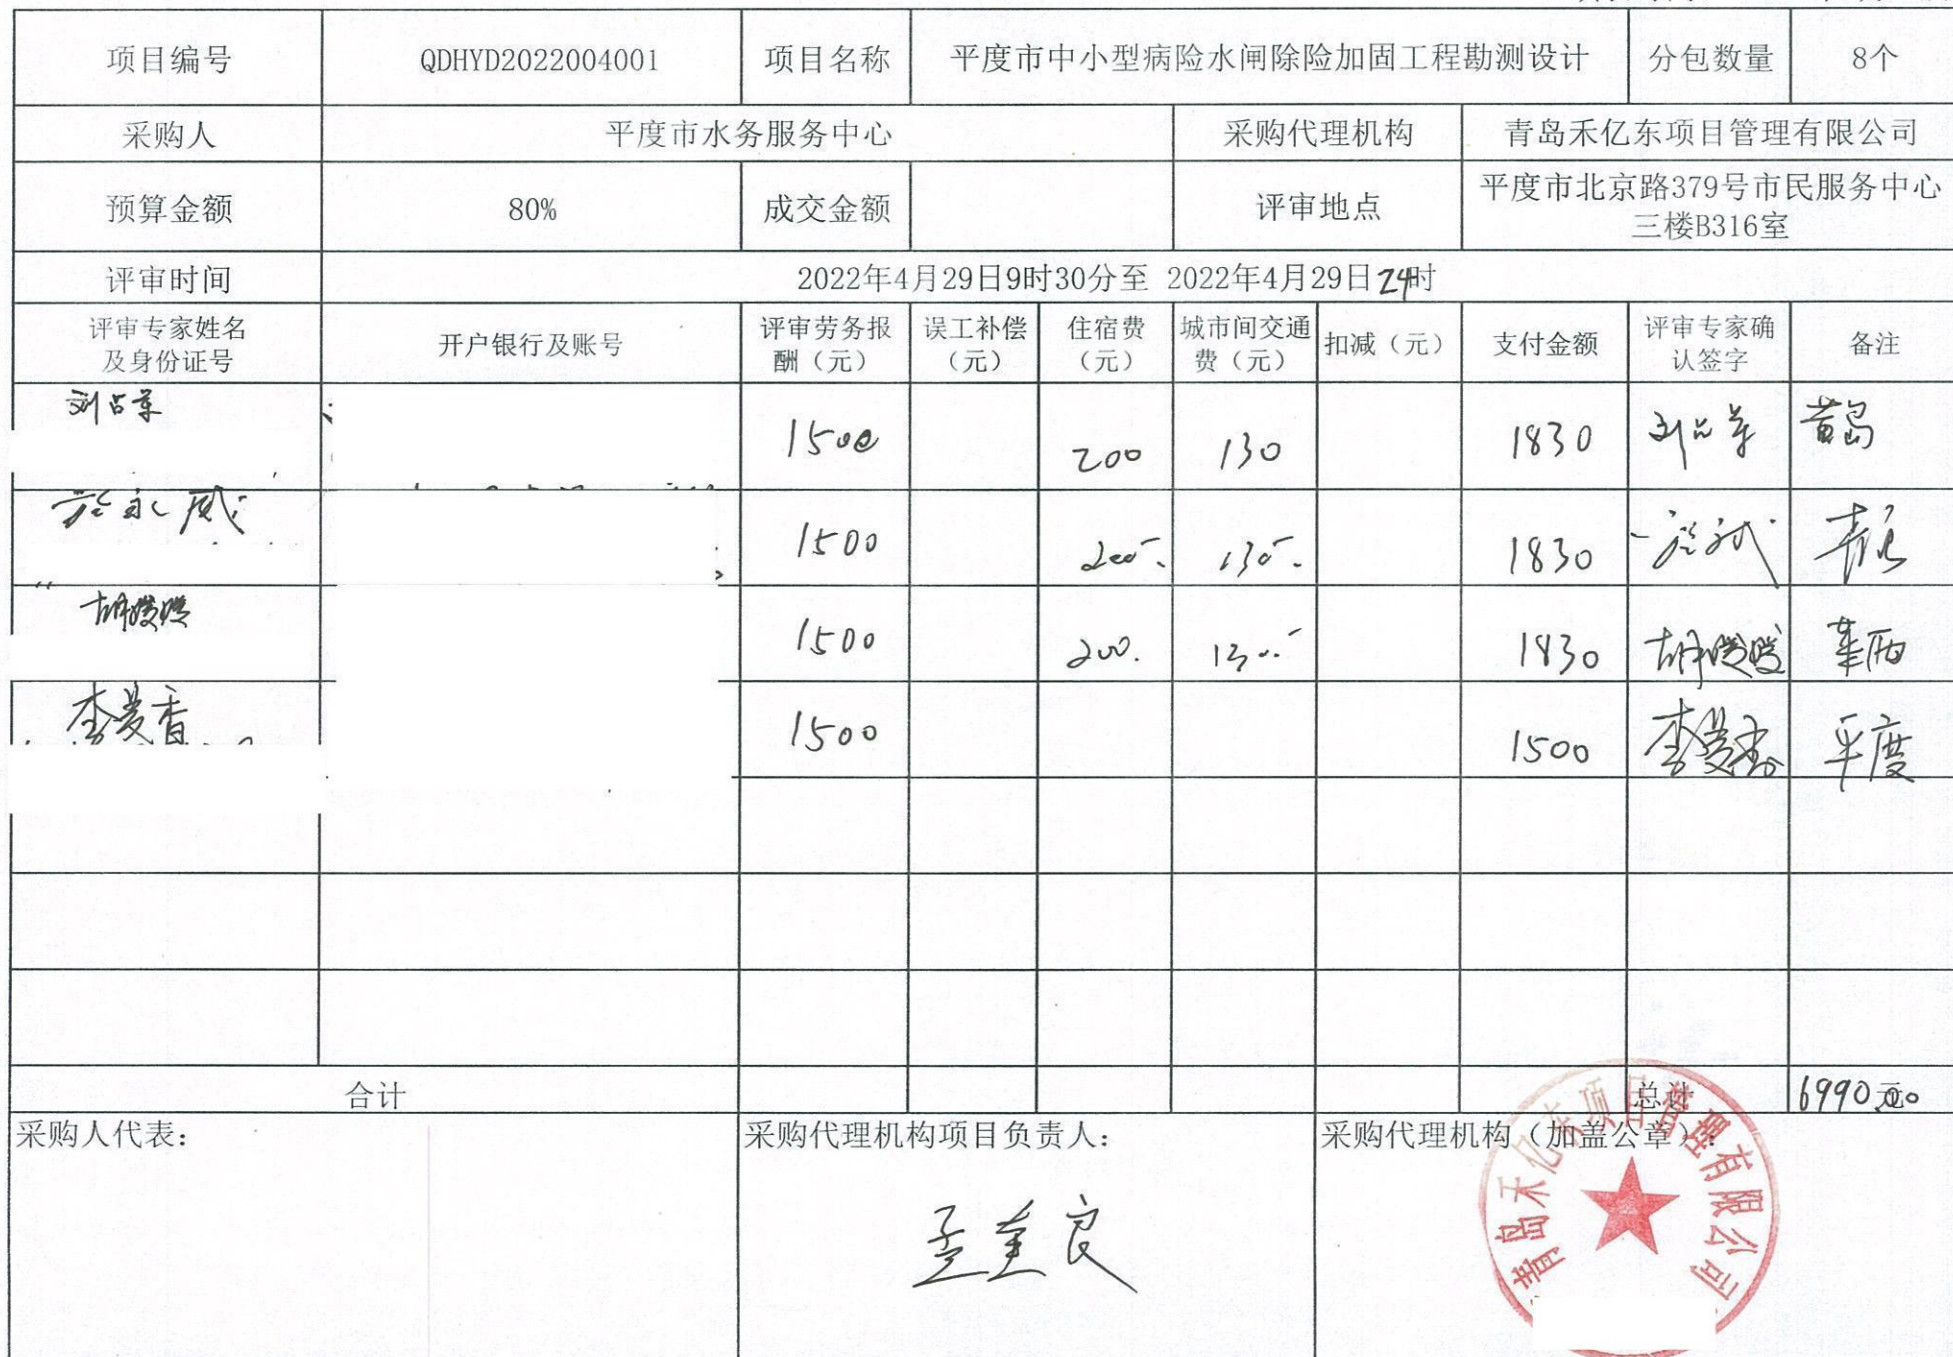 项目编号 QDHYD2022004001 项目名称 平度市中小型病险水闸除险加固工程勘测设计 分包数量 8个
采购人 平度市水务服务中心 采购代理机构 青岛禾亿东项目管理有限公司
预算金额 80% 成交金额 评审地点 平度市北京路379号市民服务中心
三楼B316室
评审时间 2022年4月29日9时30分至 2022年4月29日24时
评审专家姓名 开户银行及账号 评审劳务报 误工补偿 住宿费 城市间交通 扣减（元） 支付金额 评审专家确 备注
及身份证号 酬（元） （元） （元） 费（元） 认签字
刘占军 1500 200 130 1830 刘占军 黄岛
永威 1500 200 130 1830
胡晓晓 1500 200 130 1830 胡晓晓 莱西
李爱香 1500 1500 李爱香 平度
合计 总计 6990元
采购人代表： 采购代理机构项目负责人： 采购代理机构（加盖公章）：
孟 良
青岛禾亿东项目管理有限公司